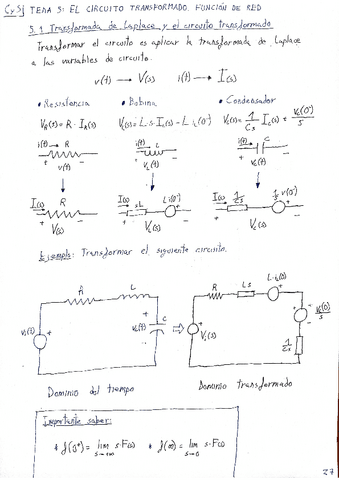 CyS TEMA 3: EL CIRCUITO TRANSFORMADO. FUNCIÓN DE RED
3.1 Transformada de Laplace y el circuito transformado
Transformar el circuito es aplicar la transformada de Laplace
a las variables de circuito.
v(t) → V(s)   i(t) → I(s)
• Resistencia • Bobina • Condensador
V_R(s) = R · I_R(s)   V_L(s) = L·s·I_L(s) - L·i_L(0⁻)   V_C(s) = 1/Cs I_C(s) + V_C(0⁻)/s
i(t) → R   i(t) → L   i(t) → C
+ v(t) -   + V_L(t) -   + V_C(t) -
I(s) → R   I(s) → sL   L i(0⁻)   I(s) → 1/Cs   v(0⁻)/s
V_R(s)   V_L(s)   V_C(s)
Ejemplo: Transformar el siguiente circuito.
R   L   R   Ls   L·i_L(0⁻)
V_C(t)   C   ⇒   V_C(0⁻)/s
1/Cs
Dominio del tiempo   Dominio transformado
Importante saber:
* f(0⁺) = lim s·F(s)   * f(∞) = lim s·F(s)
s→∞   s→0
27